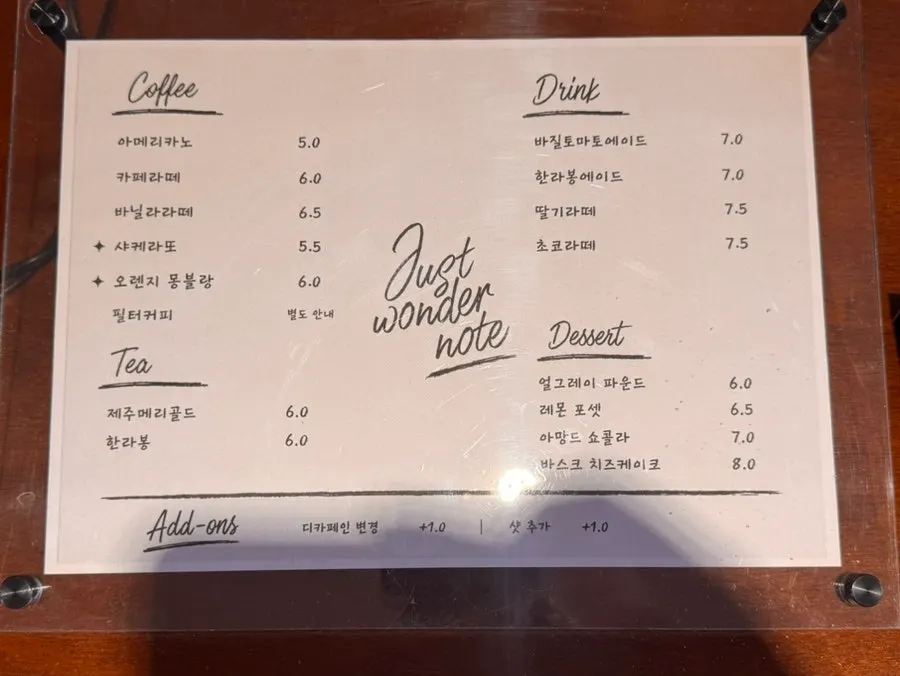 Coffee
아메리카노 5.0
카페라떼 6.0
바닐라라떼 6.5
✦ 샤케라또 5.5
✦ 오렌지 몽블랑 6.0
필터커피 별도 안내
Tea
제주메리골드 6.0
한라봉 6.0
Just
wonder
note
Drink
바질토마토에이드 7.0
한라봉에이드 7.0
딸기라떼 7.5
초코라떼 7.5
Dessert
얼그레이 파운드 6.0
레몬 포셋 6.5
아망드 쇼콜라 7.0
바스크 치즈케이크 8.0
Add-ons 디카페인 변경 +1.0 | 샷 추가 +1.0